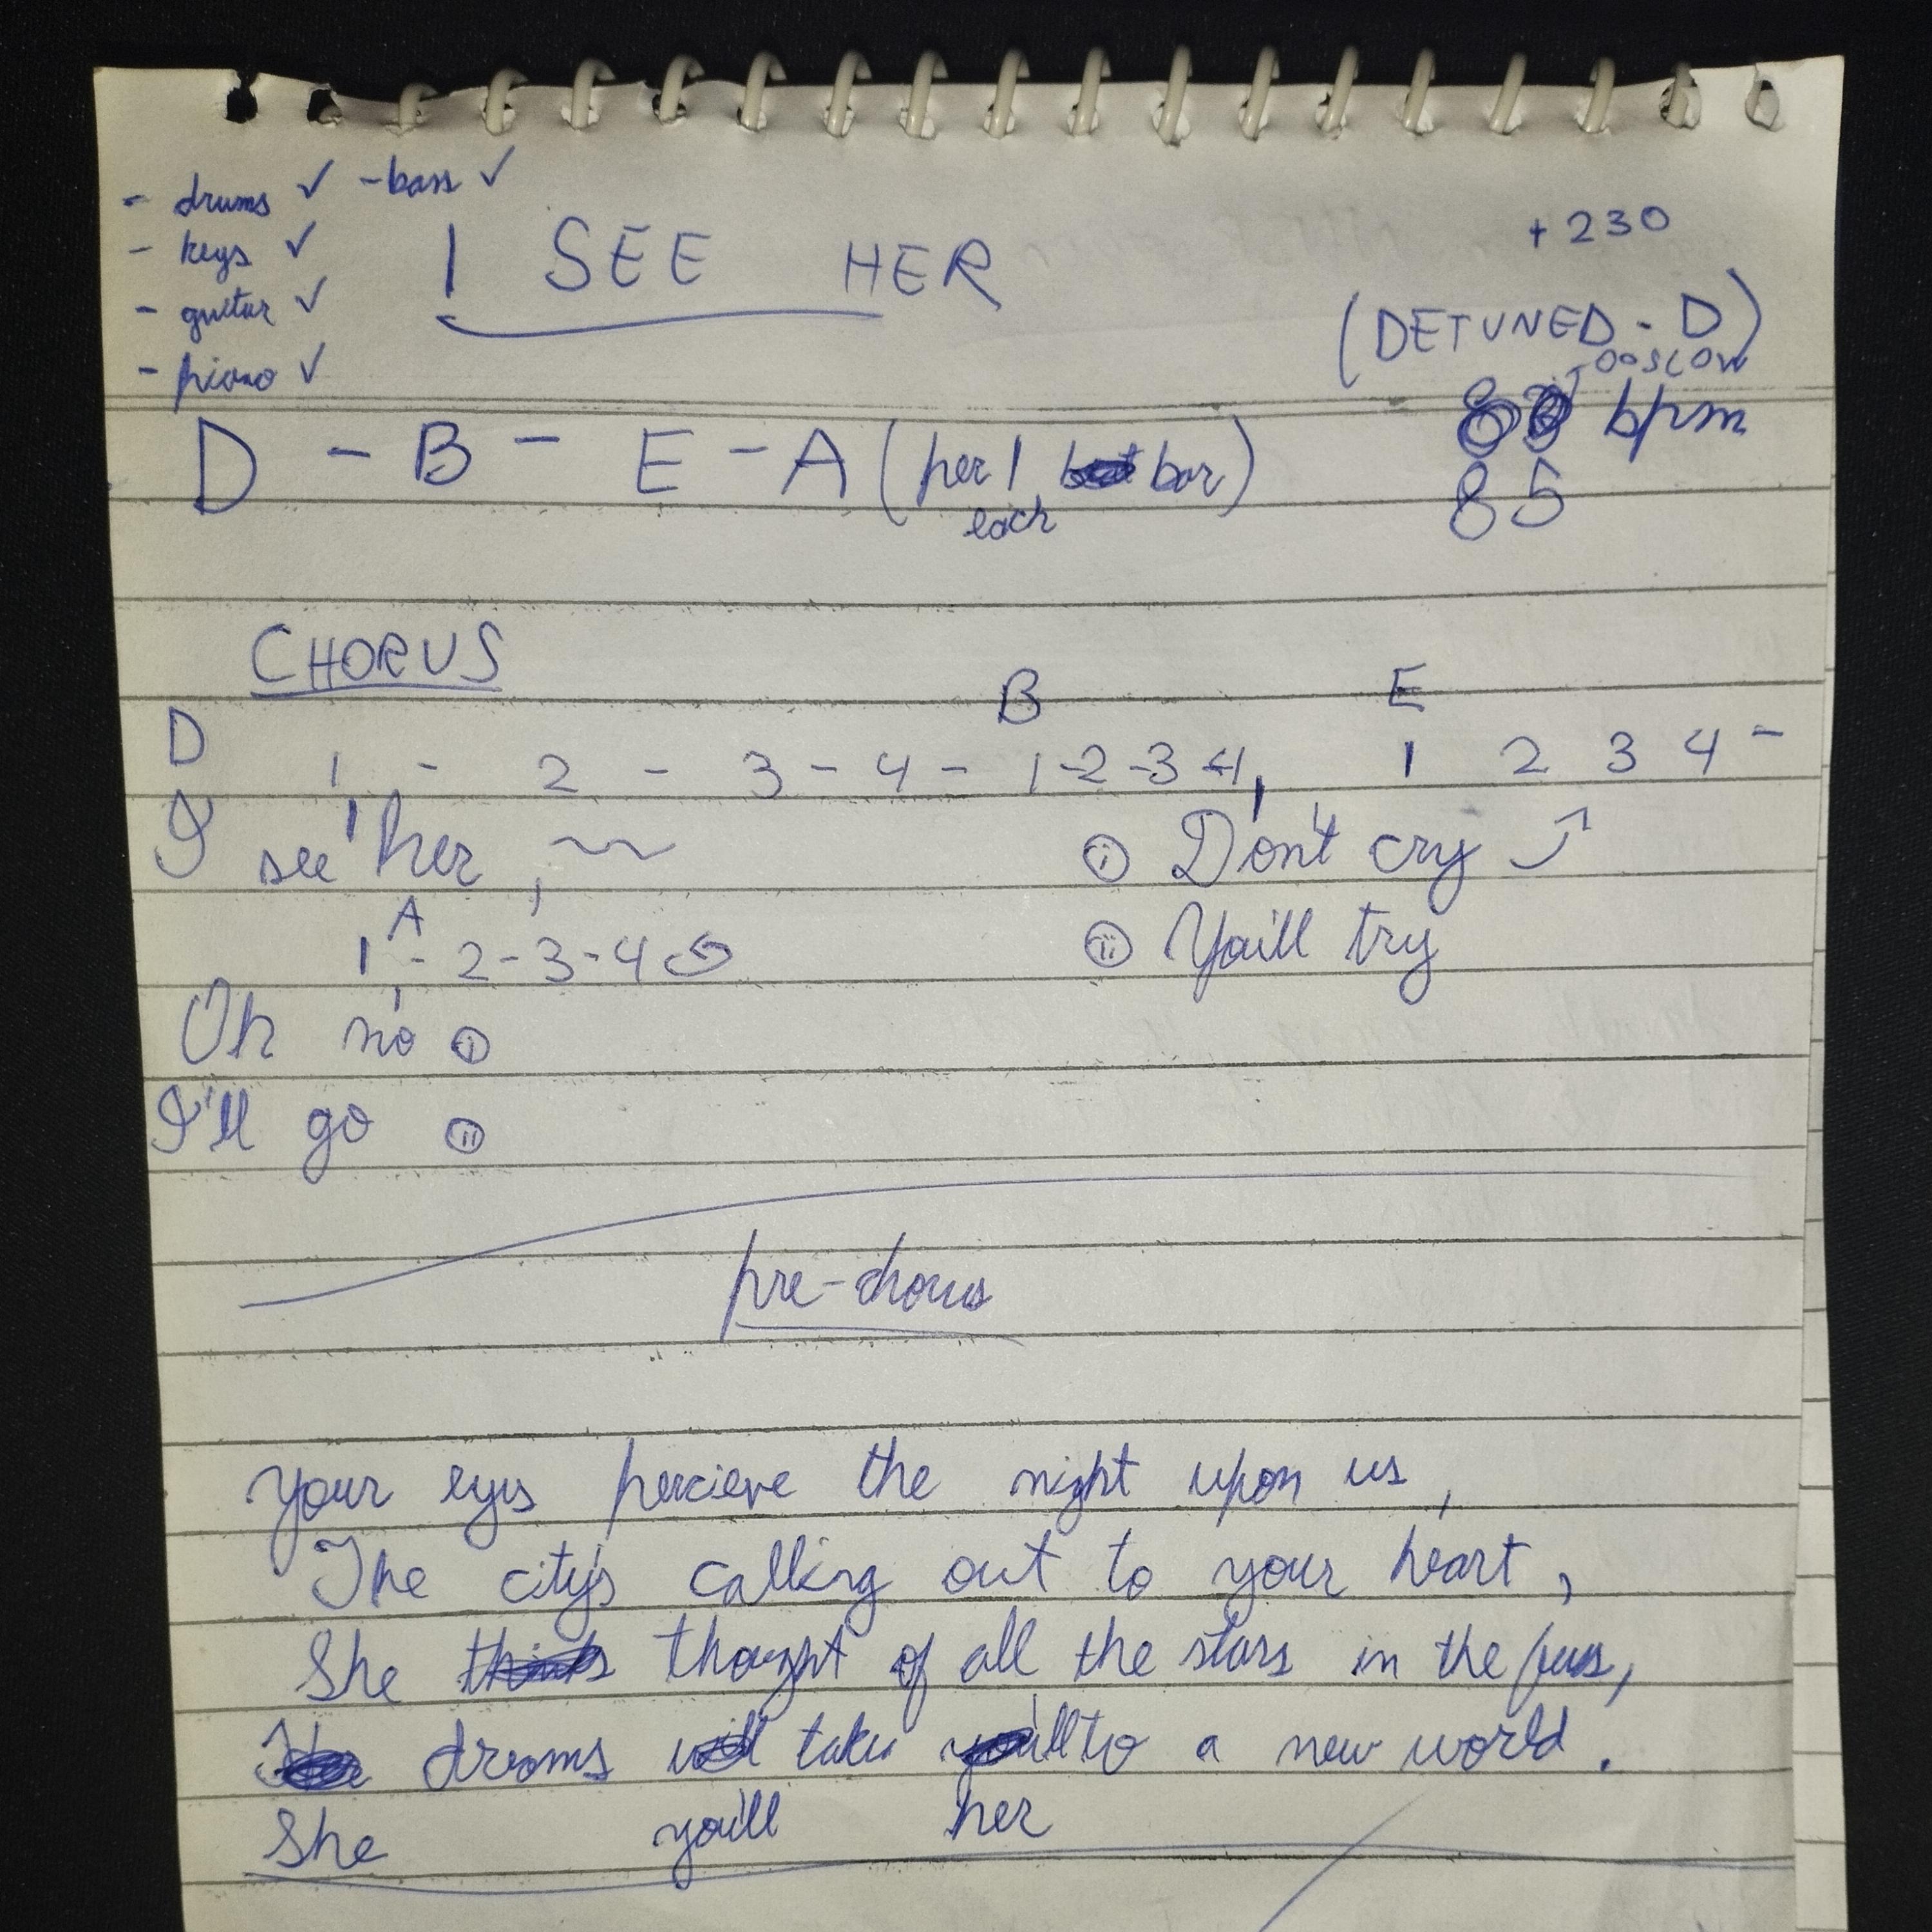 - drums ✓ - bass ✓
- keys ✓
- guitar ✓
- piano ✓
I SEE HER
+ 230
(DETUNED - D)
TOO SLOW
bpm
85
D - B - E - A (per 1 bar)
each
CHORUS
D B E
1 - 2 - 3 - 4 - 1-2-3-4, 1 2 3 4 -
I see her, ~~ (i) Don't cry ⤴
A
1 - 2 - 3 - 4 (ii) You'll try
Oh no (i)
I'll go (ii)
pre-chorus
your eyes percieve the night upon us,
The city's calling out to your heart,
She thinks thought of all the stars in the
dreams takes to a new world.
She you'll her